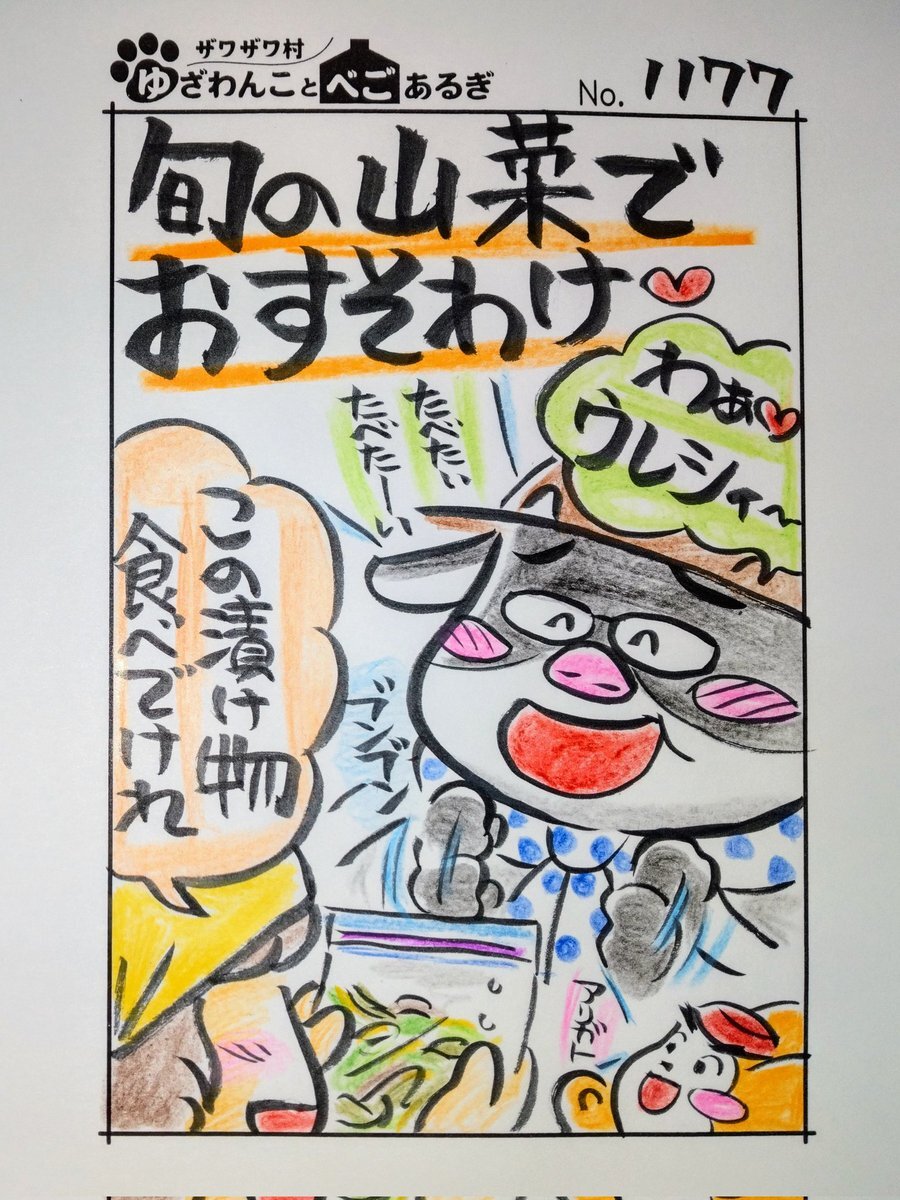 ザワザワ村
ゆざわんことべごあるぎ
No. 1177
旬の山菜で
おすそわけ
わぁ
ウレシィ〜
たべたい
たべたーい
この漬け物
食べでけれ
ブンブン